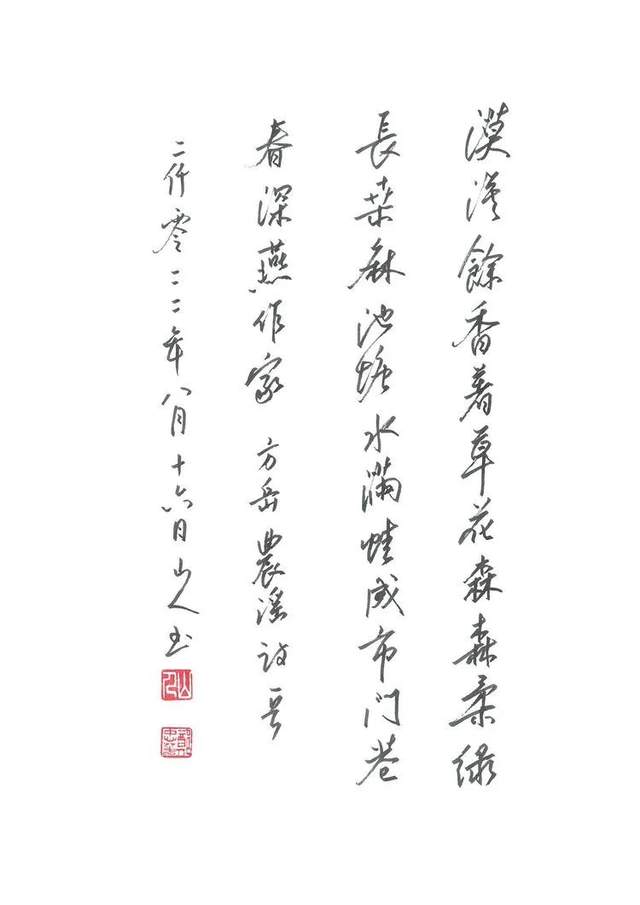 漠漠餘香著草花森森柔綠
長桑麻池塘水滿蛙成市门巷
春深燕作家 方岳農謠诗一首
二仟零二二年八月十六日山人书
山人